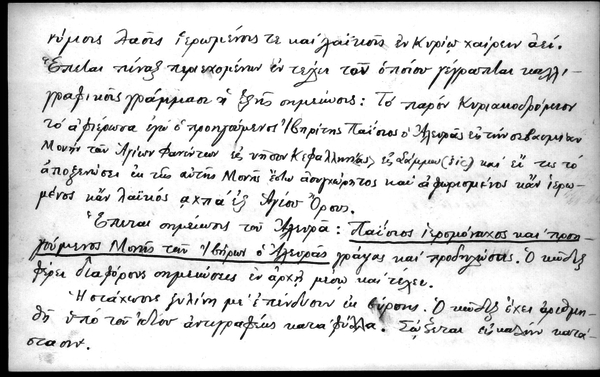 νύμοις λαοῖς ἱερωμένοις τε καὶ λαϊκοῖς ἐν Κυρίῳ χαίρειν ἀεί.
Ἕπεται πίναξ περιεχομένων ἐν τέλει τοῦ ὁποίου γέγραπται καλλι-
γραφικοῖς γράμμασι ἡ ἑξῆς σημείωσις: Τὸ παρὸν Κυριακοδρόμιον
τὸ ἀφιέρωσα ἐγὼ ὁ προηγούμενος Ἰβηρίτης Παΐσιος ὁ Ἀλευρᾶς εἰς τὴν σεβασμίαν
Μονὴν τῶν Ἁγίων Φανέντων εἰς νῆσον Κεφαλληνίας εἰς Σάμμου (sic) καὶ εἴ τις τὸ
ἀποξενώσει ἐκ τῆς αὐτῆς Μονῆς ἔστω ἀσυγχώρητος καὶ ἀφωρισμένος κἂν ἱερω-
μένος κἂν λαϊκός αχπα ἐξ Ἁγίου Ὄρους.
Ἕπεται σημείωσις τοῦ Ἀλευρᾶ: Παΐσιος ἱερομόναχος καὶ προη-
γούμενος Μονῆς τῶν Ἰβήρων ὁ Ἀλευρᾶς γράψας καὶ προδηλώσας. Ὁ κῶδιξ
φέρει διαφόρους σημειώσεις ἐν ἀρχῇ μέσῳ καὶ τέλει.
Ἡ στάχωσις ξυλίνη μὲ ἐπένδυσιν ἐκ βύρσης. Ὁ κῶδιξ ἔχει ἀριθμη-
θῆ ὑπὸ τοῦ ἰδίου ἀντιγραφέως κατὰ φύλλα. Σῴζεται εἰς καλὴν κατά-
στασιν.